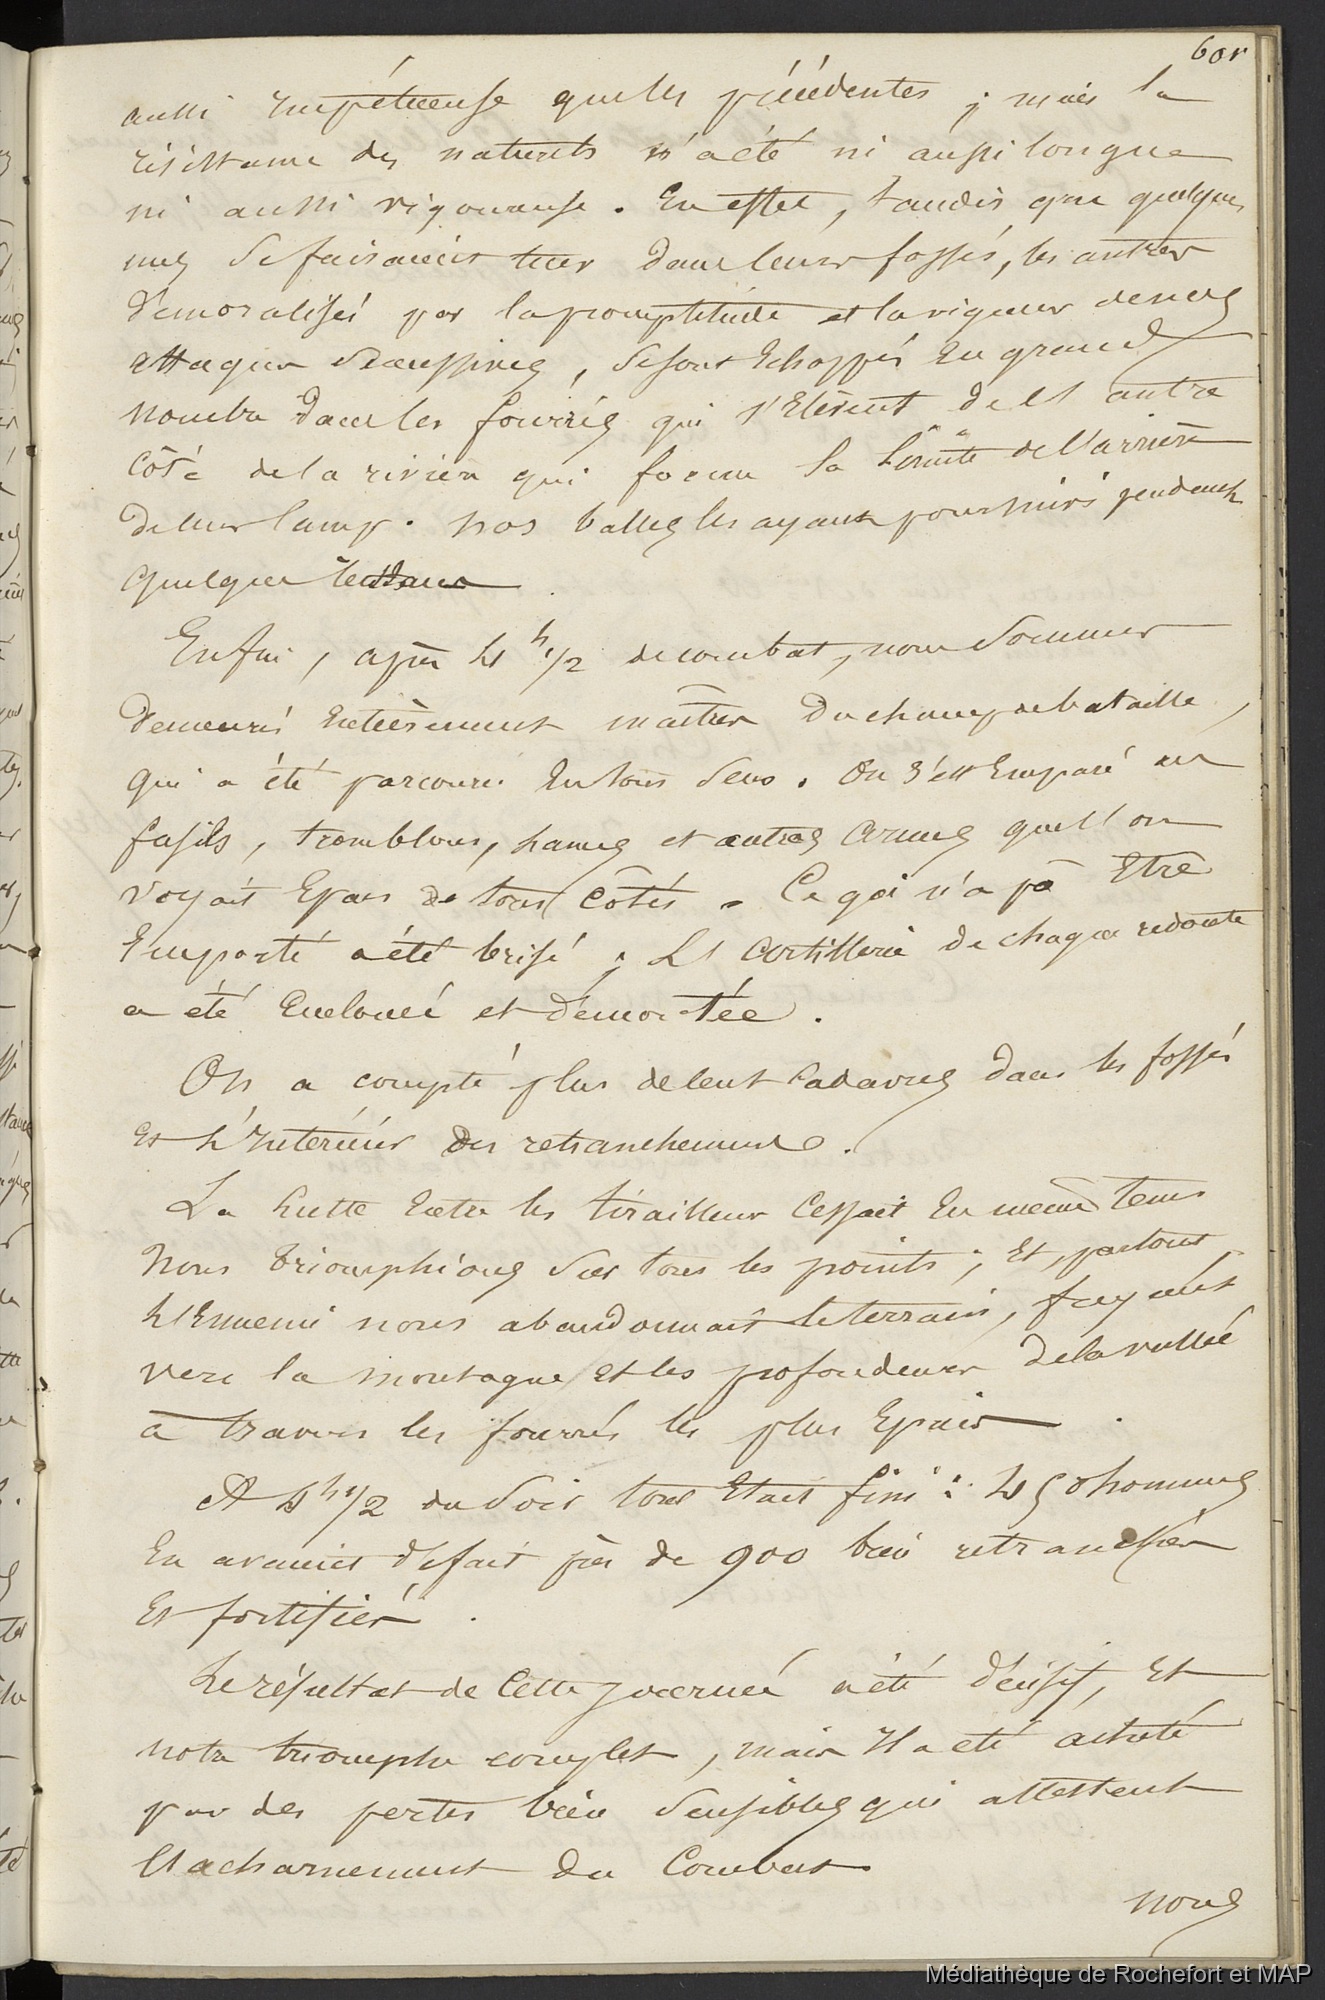 60r
aussi impétueuse que les précédentes ; mais la
résistance des naturels n'a été ni aussi longue
ni aussi vigoureuse . En effet, tandis que quelques
uns se faisaient tuer dans leurs fossés, les autres
démoralisés par la promptitude et la vigueur de nos
attaques , se sont Echappés En grand
nombre dans les fourrés qui s'Elèvent de l'autre
côté de la rivière qui forme la limite de l'arrière
de leur camp . nos balles les ayant poursuivi pendant
quelque
Enfin, après 4 h 1/2 de combat, nous Sommes
demeurés Entièrement maîtres du champ de bataille,
qui a été parcouru En tous Sens . On s'est Emparé des
fusils, tromblons, lances et autres armes que l'on
voyait Epars de tous Côtés . Ce qui n'a pû Etre
Emporté a été brisé ; L'artillerie de chaque redoute
a été Enclouée et démontée .
On a compté plus de Cent Cadavres dans les fossés
Et L'Intérieur des retranchements .
La Lutte Entre les tirailleurs Cessait En même tems
Nous triomphions Sur tous les points ; Et, partout,
L'Ennemi nous abandonnait le terrain, fuyant
vers la montagne Et les profondeurs de la vallée
à travers les fourrés les plus Epais .
A 4 h 1/2 du Soir tout Etait fini : hommes
En avaient défait près de 900 bien retranchés
Et fortifiés .
Le résultat de Cette journée a été décisif, Et
notre triomphe complet, mais Il a été acheté
par des pertes bien Sensibles qui attestent
l'acharnement du Combat
nous
Médiathèque de Rochefort et MAP